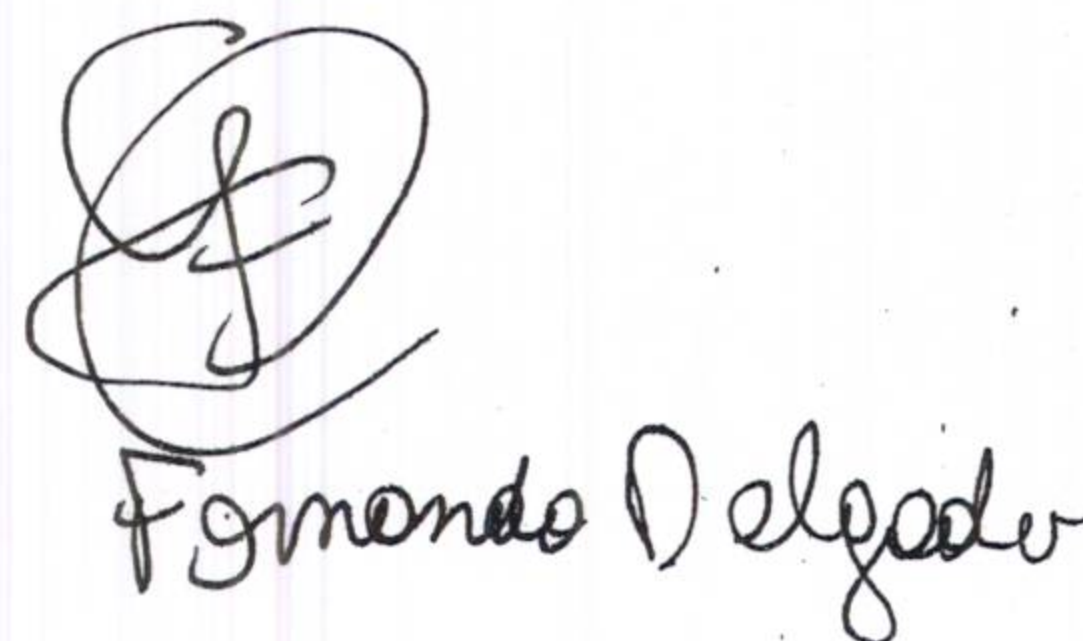 Fernando Delgado